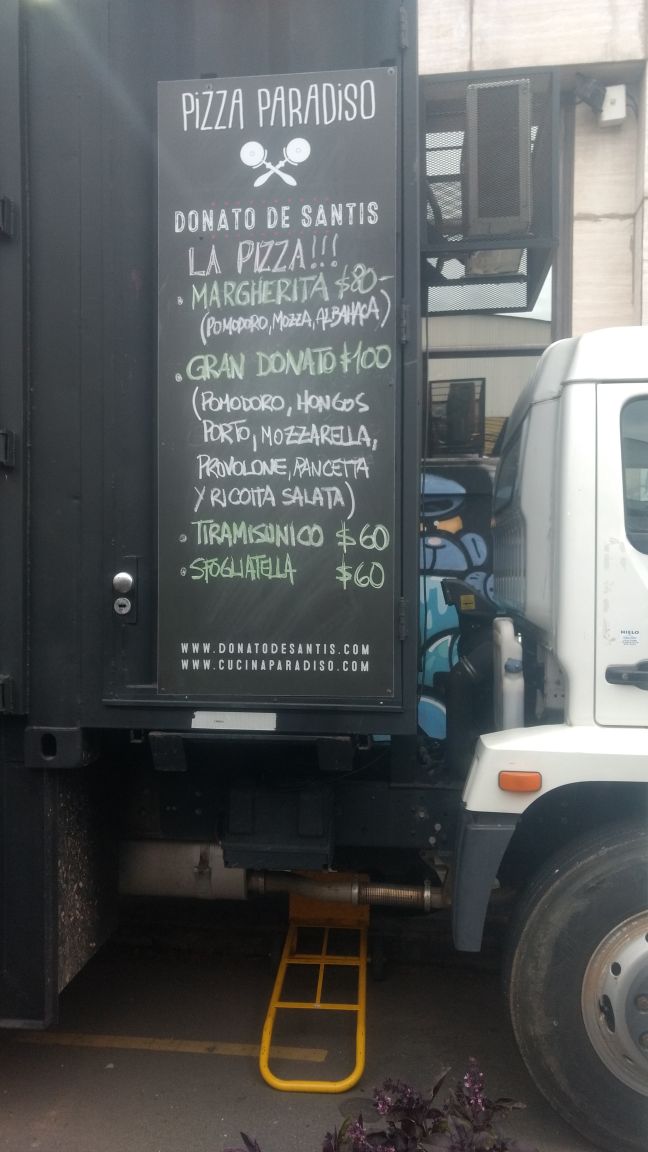 PIZZA PARADISO
DONATO DE SANTIS
LA PIZZA!!!
MARGHERITA $80-
(POMODORO, MOZZA, ALBAHACA)
GRAN DONATO $100
(POMODORO, HONGOS
PORTO, MOZZARELLA,
PROVOLONE, PANCETTA
Y RICOTTA SALATA)
TIRAMISUNICO $60
SFOGLIATELLA $60
WWW.DONATODESANTIS.COM
WWW.CUCINAPARADISO.COM
HIELO